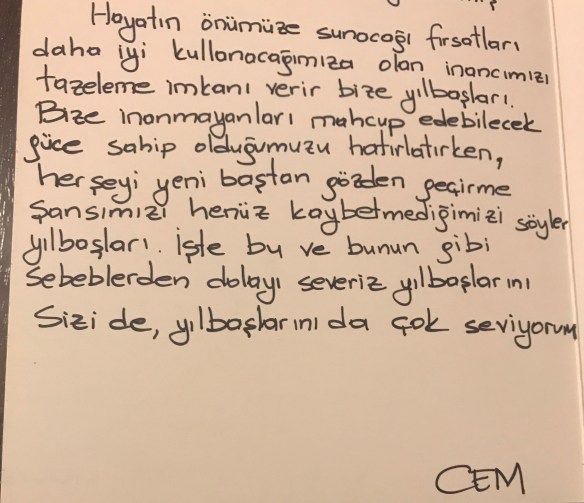 Hayatın önümüze sunacağı fırsatları
daha iyi kullanacağımıza olan inancımızı
tazeleme imkanı verir bize yılbaşları.
Bize inanmayanları mahcup edebilecek
güce sahip olduğumuzu hatırlatırken,
herşeyi yeni baştan gözden geçirme
şansımızı henüz kaybetmediğimizi söyler
yılbaşları. İşte bu ve bunun gibi
sebeblerden dolayı severiz yılbaşlarını
Sizi de, yılbaşlarını da çok seviyorum
CEM